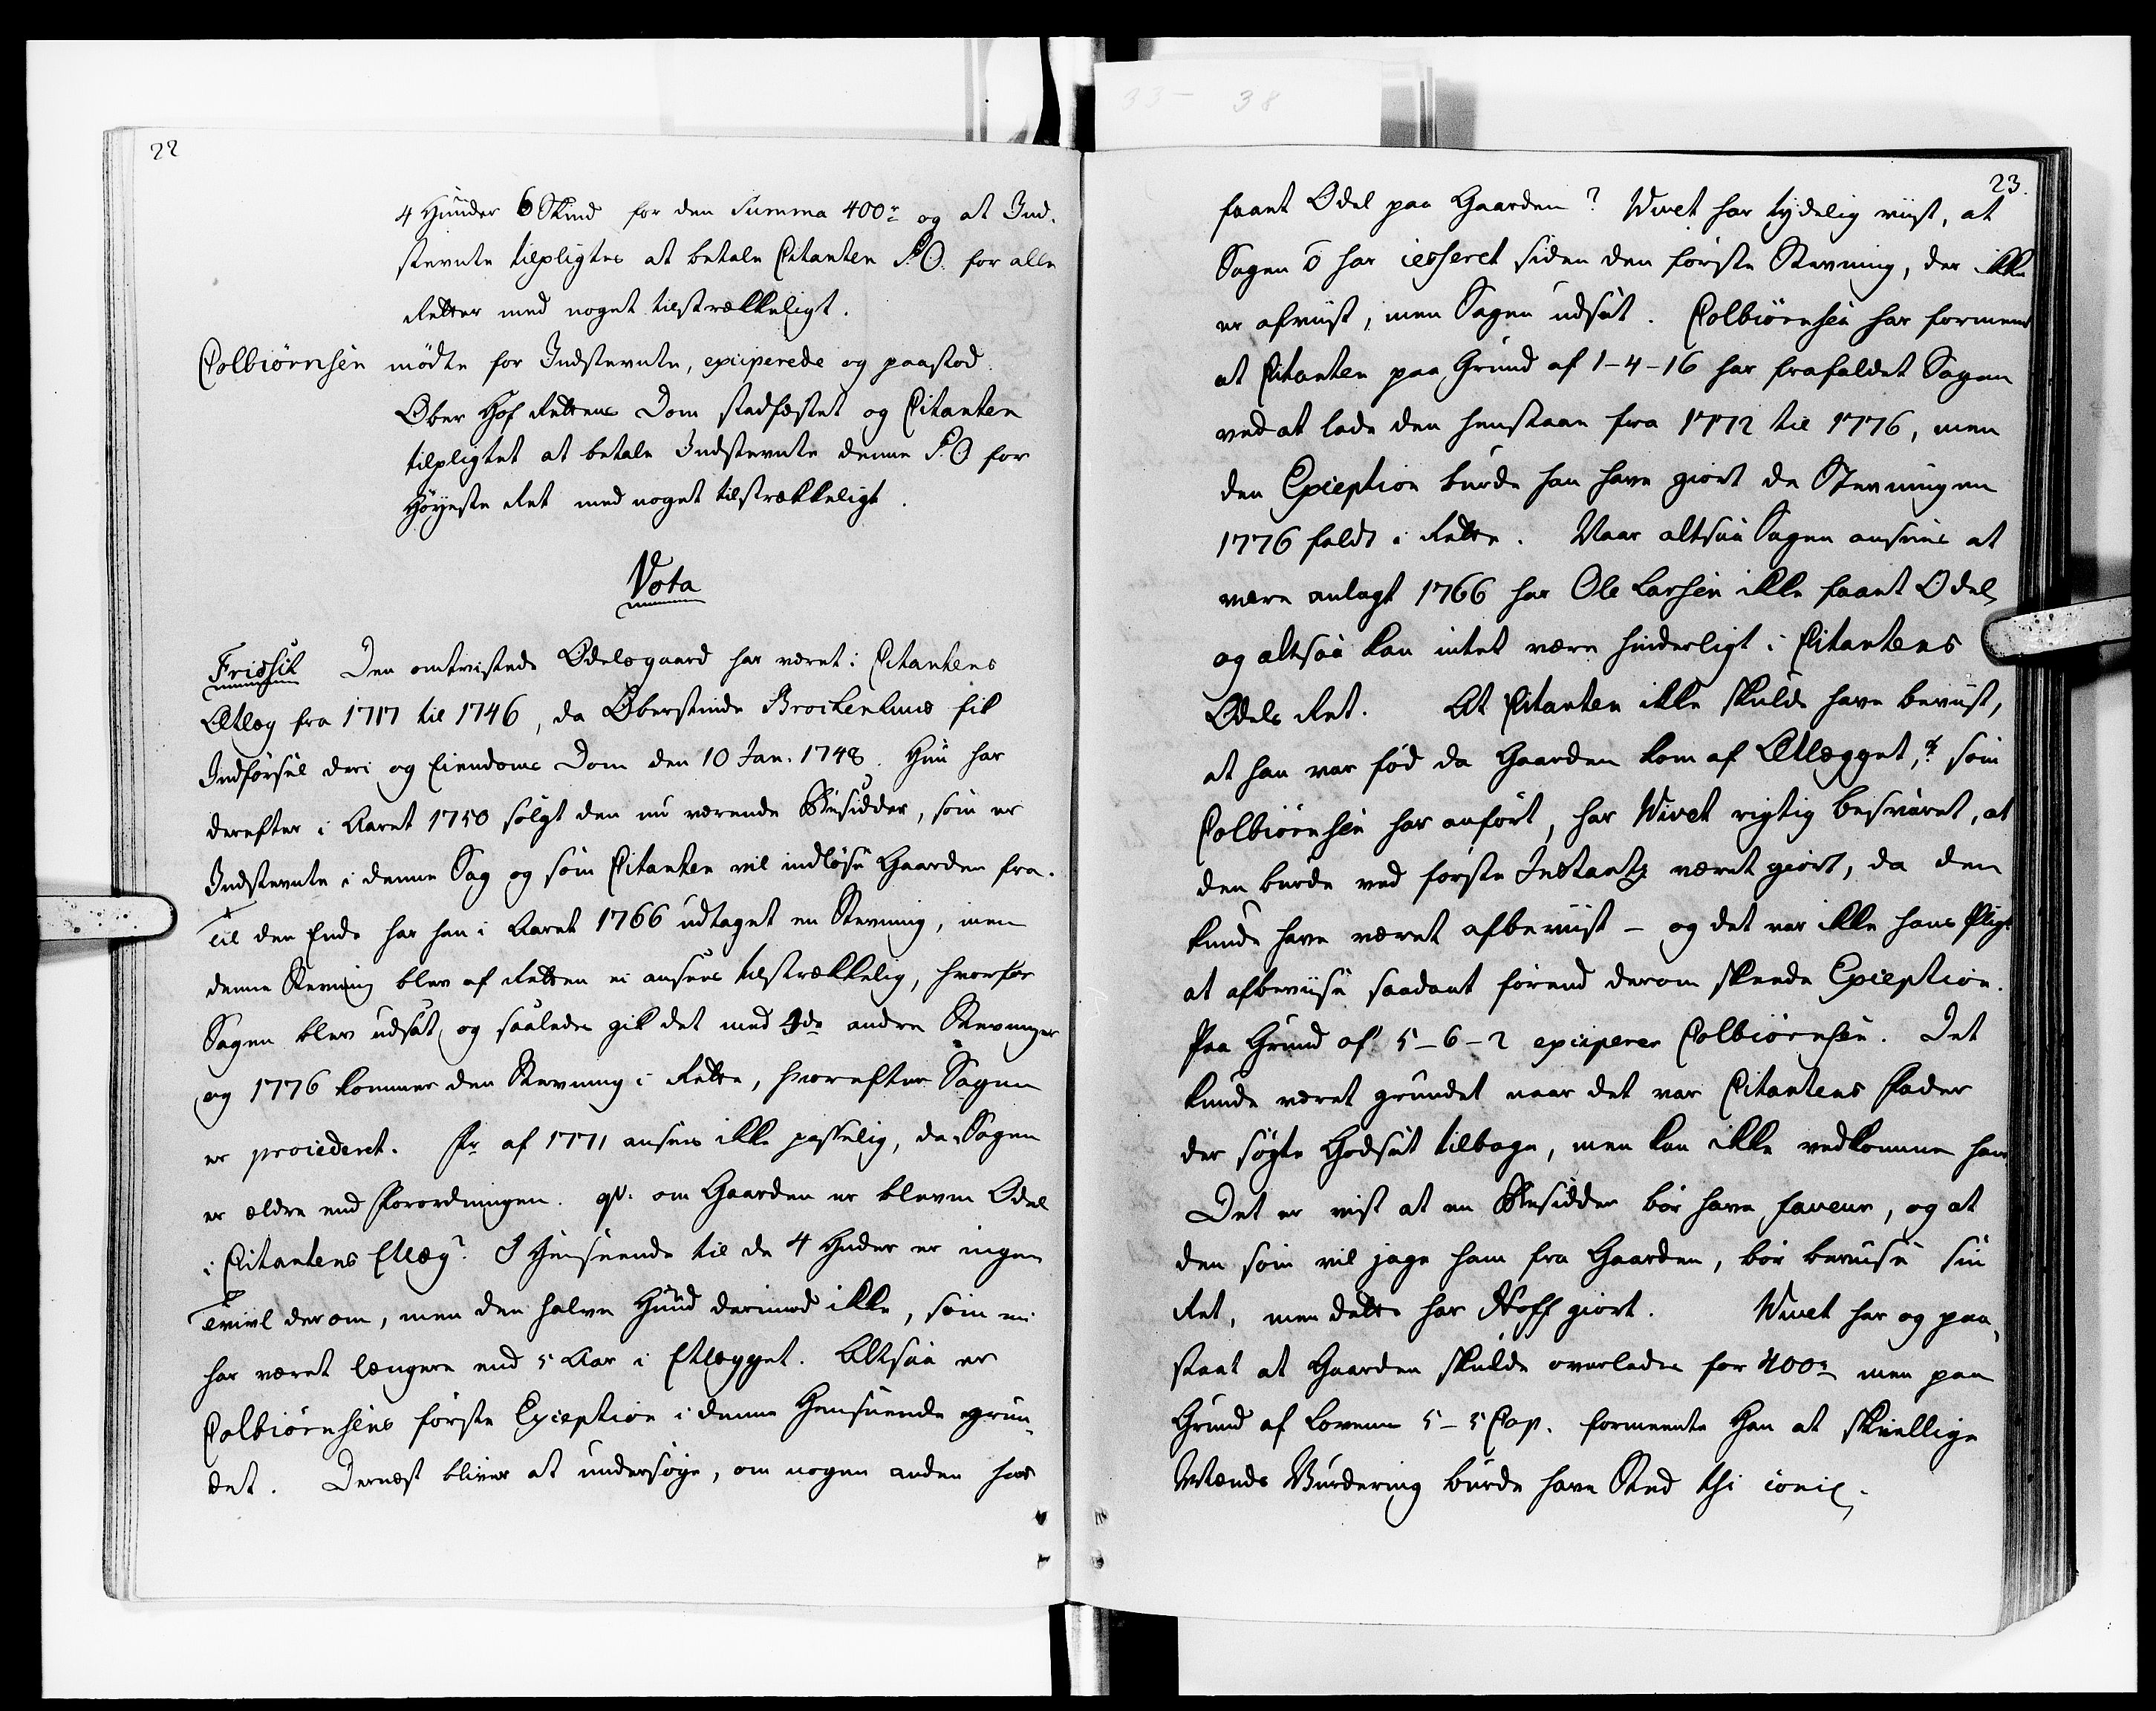 22
4 Huuder 6 Skind for den Summa 400r og at Ind-
stevnte tilpligtes at betale Citanten P.O. for alle
Retter med noget tilstrækkeligt.
Colbiörnsen mödte for Indstevnte, exciperede og paastod
Ober Hof Rettens Dom stadfæstet og Citanten
tilpligtet at betale Indstevnte denne P.O for
Höyeste Ret med noget tilstrækkeligt.
Vota
Den omtvistede Odelsgaard har været i Citantens
Ætlæg fra 1717 til 1746, da Oberstinde Brockenhuus fik
Indförsel deri og Eiendoms Dom den 10 Jan. 1748. Hun har
derefter i Aaret 1750 solgt den nu værende Besidder, som er
Indstevnte i denne Sag og som Citanten vil indlöse Gaarden fra.
Til den Ende har han i Aaret 1766 udtaget en Stevning, men
denne Stevning blev af Retten ei ansees tilstrækkelig, hvorfor
Sagen blev udsat, og saaledes gik det med andre Stevninger
og 1776 kommer den Stevning i Rette, hvorefter Sagen
er procederet. Fr af 1771 ansees ikke passelig, da Sagen
er ældre end Forordningen. qv: om Gaarden er bleven Odel
i Citantens Etlæg? I Henseende til de 4 Huder er ingen
Tvivl derom, men den halve Huud derimod ikke, som ei
har været længere end 5 Aar i Etlegget. Altsaa er
Colbiörnsens förste Exception i denne Henseende grun-
det. Dernæst bliver at undersöge, om nogen anden har
23.
faaet Odel paa Gaarden? Wivet har tydelig viist, at
Sagen ō har cesseret siden den förste Stevning, der ikke
er afviist, men Sagen udsat. Colbiörnsen har formeent
at Citanten paa Grund af 1-4-16 har frafaldet Sagen
ved at lade den henstaae fra 1772 til 1776, men
den Exception burde han have giort da Stevningen
1776 faldt i Rette. Naar altsaa Sagen ansees at
være anlagt 1766 har Ole Larsen ikke faaet Odel,
og altsaa kan intet være hinderligt i Citantens
Odels Ret. At Citanten ikke skulde have beviist,
at han var föd da Gaarden kom af Ætlægget, som
Colbiörnsen har anfört, har Wivet rigtig besvaret, at
den burde ved förste Instantz været giort, da den
kunde have været afbeviist - og det var ikke hans Pligt
at afbeviise saadant förend derom skeede Exception.
Paa Grund af 5-6-2 exciperer Colbiörnsen. Det
kunde været grundet naar det var Citantens Fader
der sögte Godset tilbage, men kan ikke vedkomme ham
Det er vist at en Besidder bör have faveur, og at
den som vil jage ham fra Gaarden, bör beviise sin
Ret, men dette har Hoff giort. Wivet har og paa-
staaet at Gaarden skulde overlades for 400r men paa
Grund af Lovens 5-5 Cap. formeente Han at skiellige
Mænds Vurdering burde have Sted thi